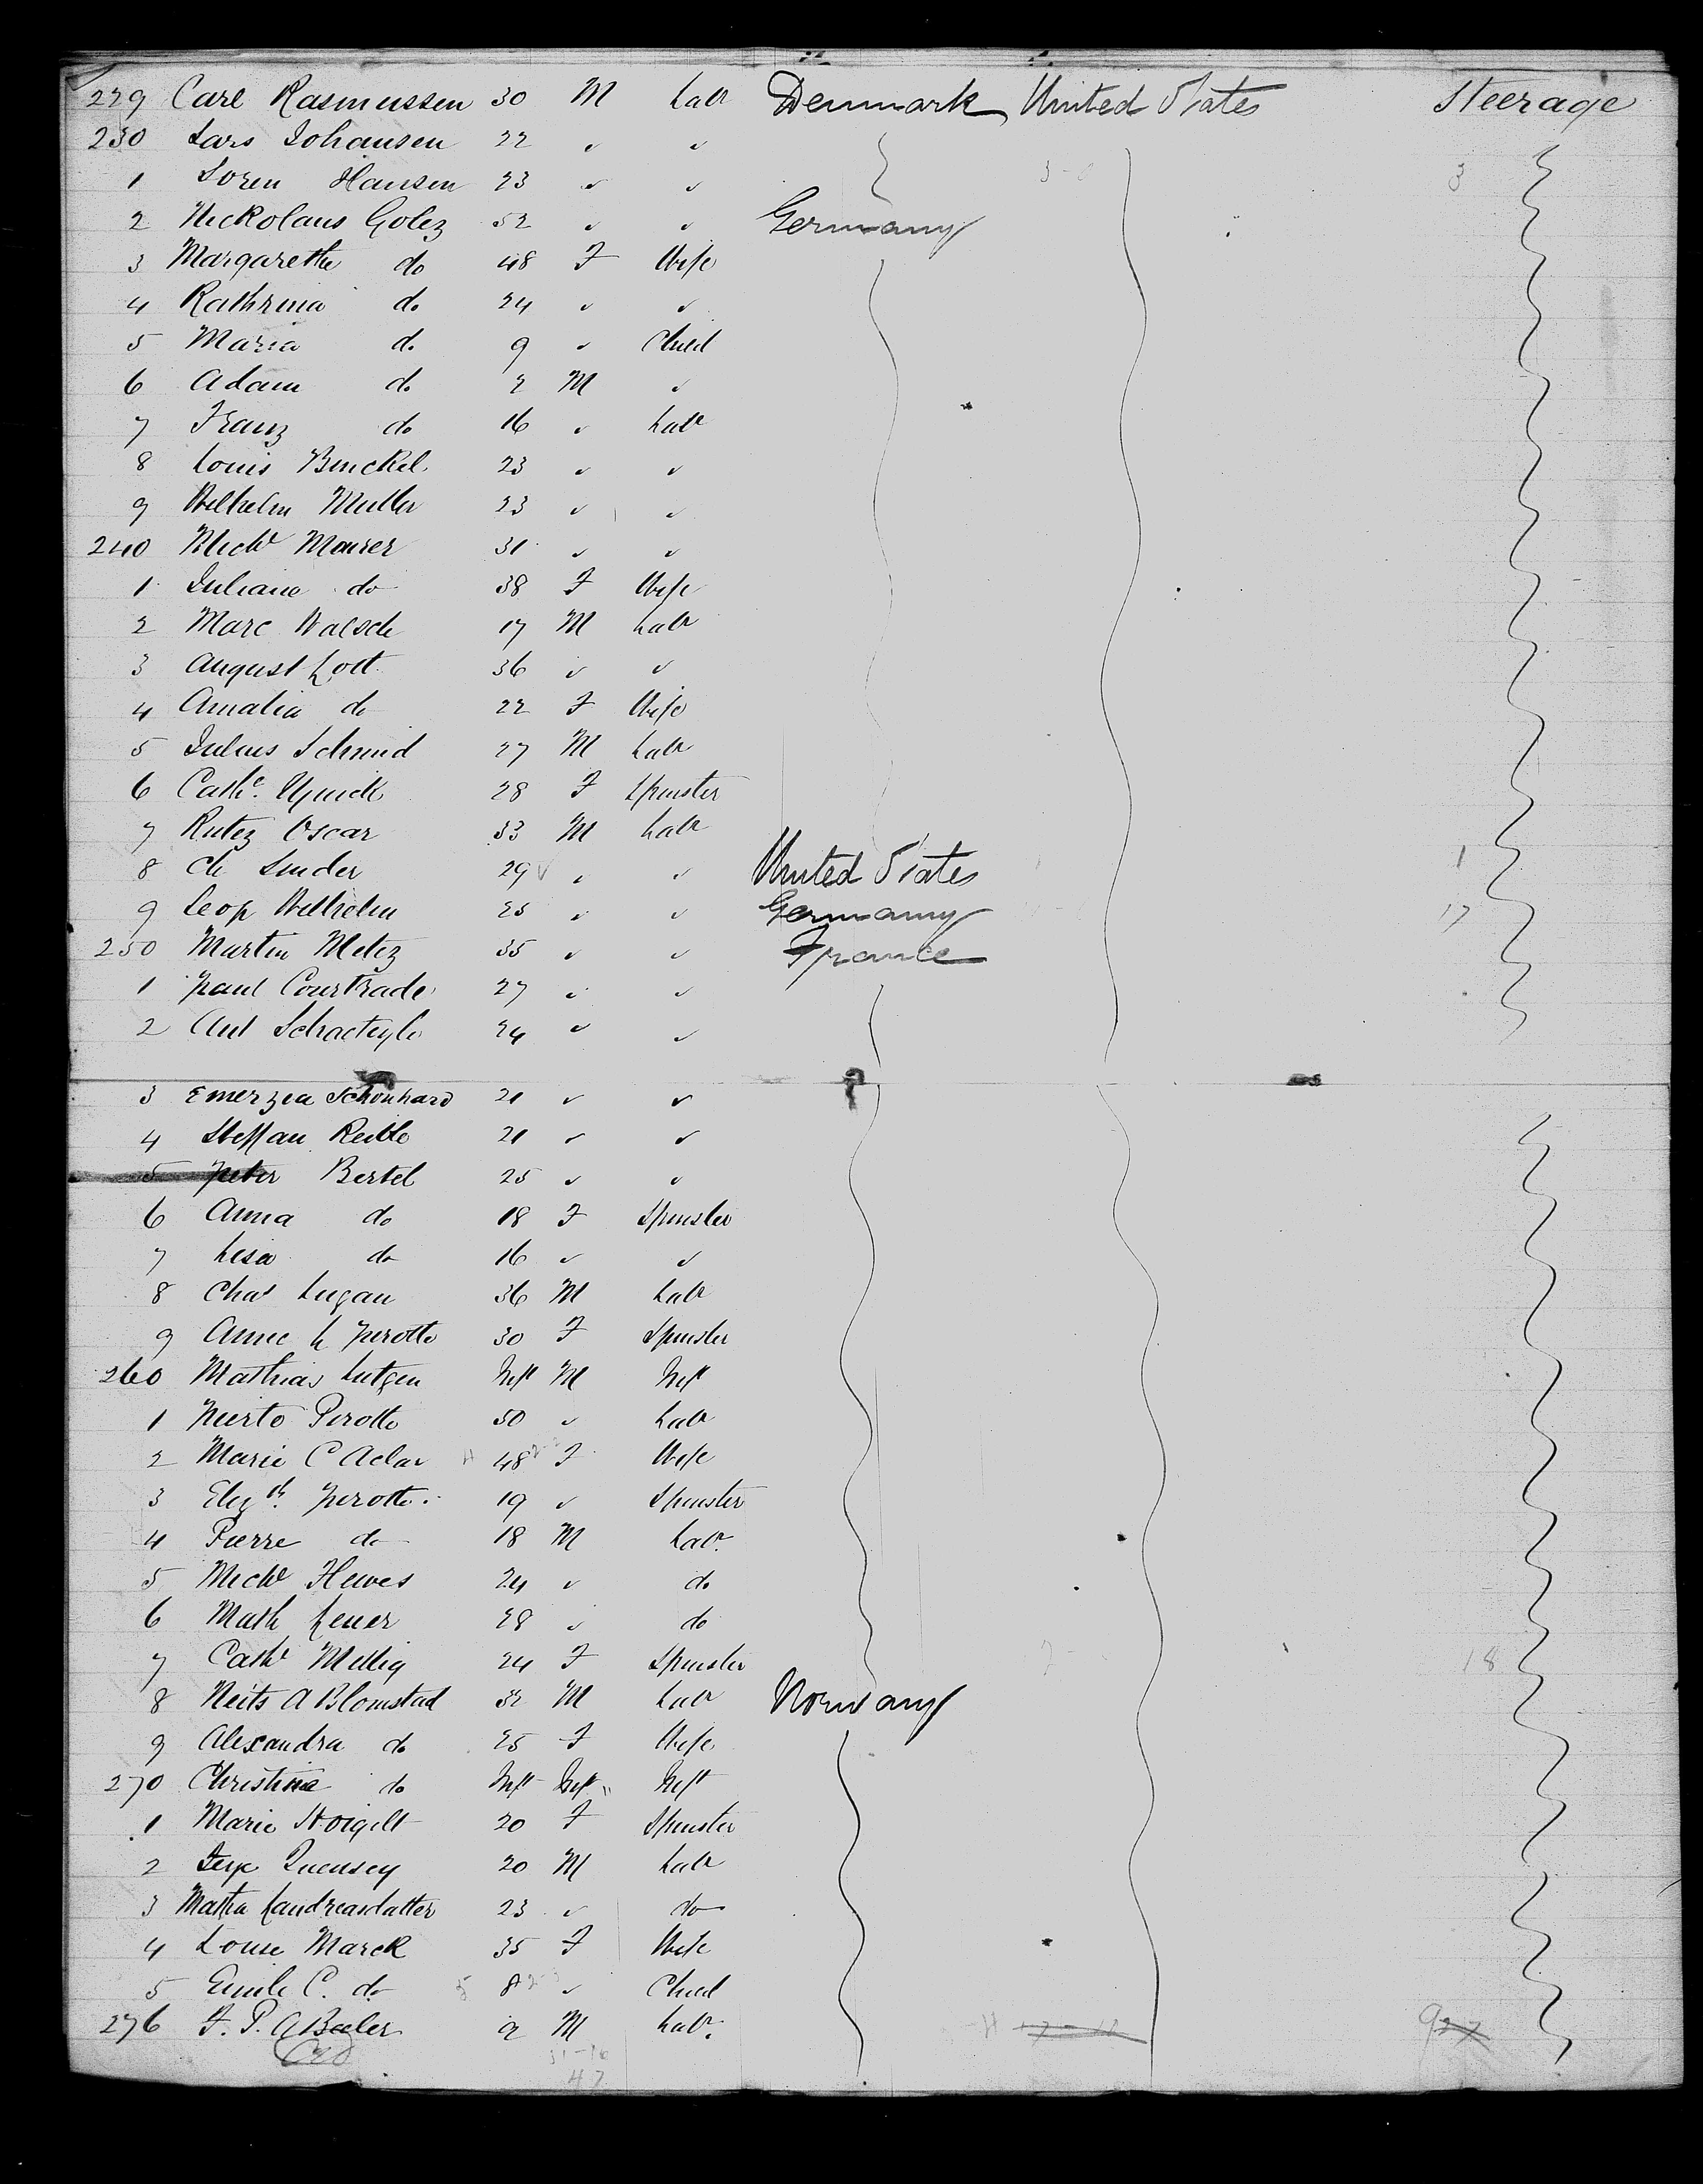 229 Carl Rasmussen 30 M Labr Denmark United States Steerage
230 Lars Johansen 22 " "
1 Soren Hansen 23 " "
2 Nickolaus Golez 52 " " Germany
3 Margarethe do 48 F Wife
4 Kathrina do 24 " "
5 Maria do 9 " Child
6 Adam do 2 M "
7 Franz do 16 " Labr
8 Louis Binckel 23 " "
9 Wilhelm Muller 23 " "
240 Michl Maurer 31 " "
1 Juliane do 38 F Wife
2 Marc Walsch 17 M Labr
3 August Lott 36 " "
4 Amalia do 22 F Wife
5 Julius Schmid 27 M Labr
6 Cathe 28 F Spinster
7 Rutez Oscar 33 M Labr
8 Ch Linder 29 " " United States 1
9 Leop Wilhelm 25 " " Germany 17
250 Martin Metez 35 " " France
1 Paul Courtrade 27 " "
2 Ant 24 " "
3 Emerzea Schonhard 21 " "
4 Steffan Reible 21 " "
5 Peter Bertel 25 " "
6 Anna do 18 F Spinster
7 Lisa do 16 " "
8 Chas Lugan 36 M Labr
9 Anne L Perotte 30 F Spinster
260 Mathias Lutgen Inft M Inft
1 Perotte 50 " Labr
2 Marie C Aclar 48 F Wife
3 Elizth Perotte 19 " Spinster
4 Pierre do 18 M Labr
5 Michl Hewes 24 " do
6 Math Lener 28 " do
7 Cathe Mellig 24 F Spinster 18
8 Neits A Blomstad 32 M Labr Norway
9 Alexandra do 25 F Wife
270 Christina do Inft Inft " Inft
1 Marie Stoigelt 20 F Spinster
2 Quensey 20 M Labr
3 Martha Landreasdatter 23 " do
4 Louise Marck 35 F Wife
5 Emile C. do 8 " Child
276 F. P. A Beeler 2 M Labr. 9 27
31-16
47